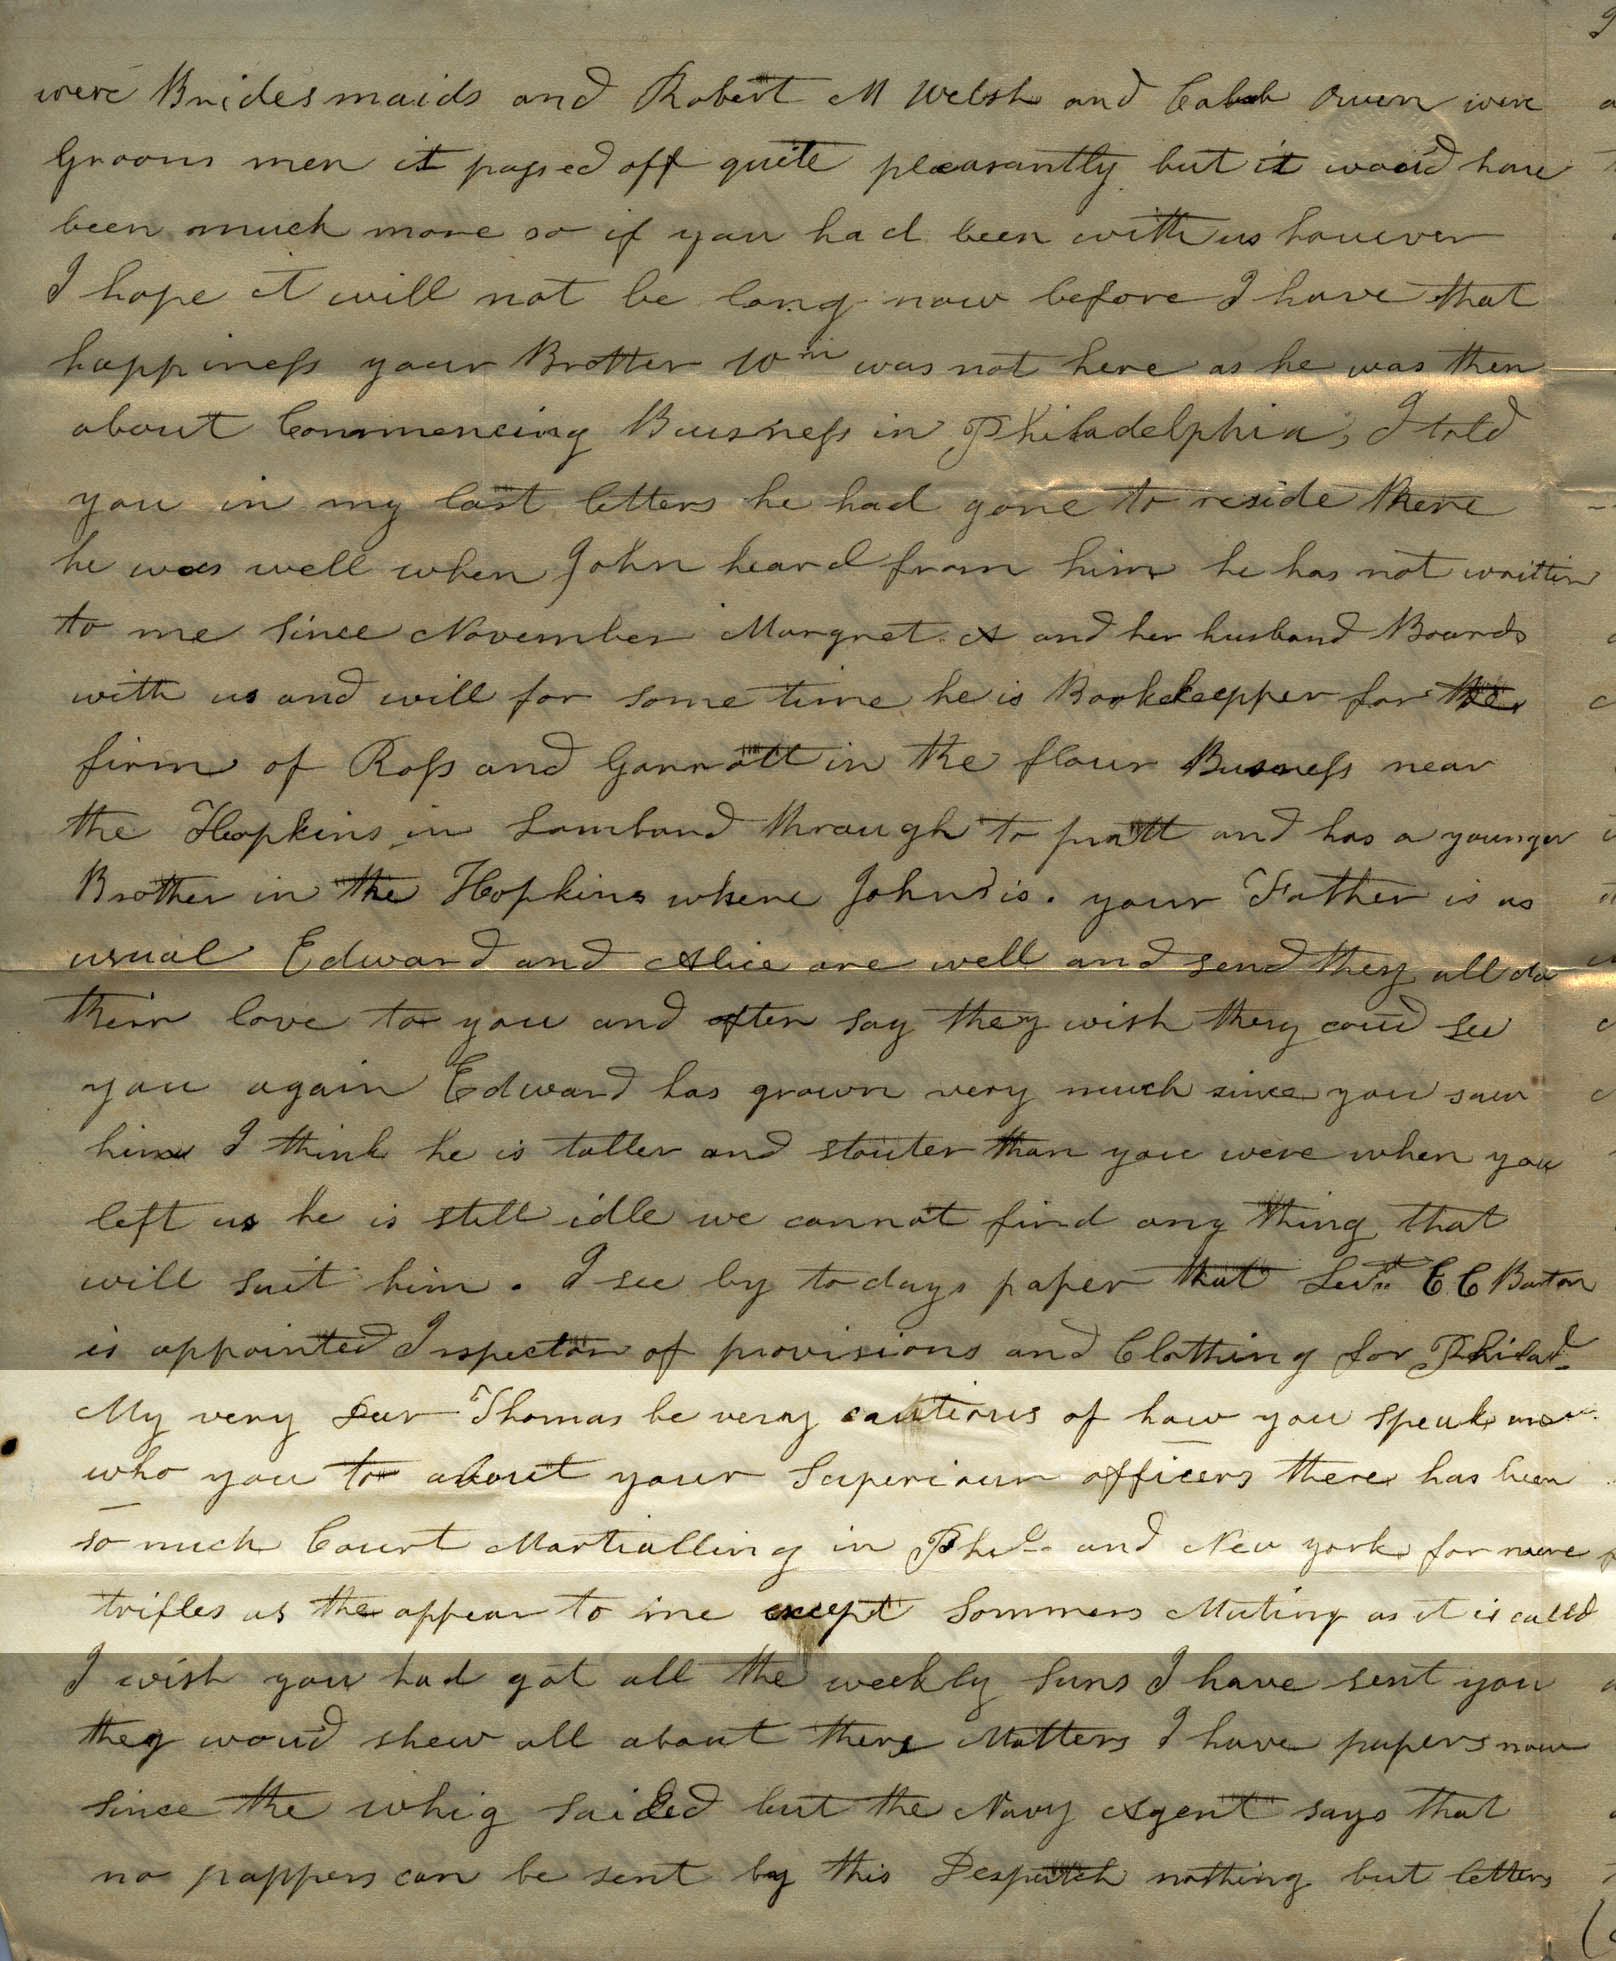 were Bridesmaids and Robert M Welsh and Caleb Owen were
Grooms men it passed off quite pleasantly but it woud have
been much more so if you had been with us however
I hope it will not be long now before I have that
happiness your Brother Wm was not here as he was then
about Commencing Busness in Philadelphia, I told
you in my last letters he had gone to reside there
he was well when John heard from him he has not writtin
to me since November Margret A and her husband Boards
with us and will for some time he is Bookkeepper for the
firm of Ross and Garrott in the flour Busness near
the Hopkins in Lombard through to pratt and has a younger
Brother in the Hopkins where John is. your Father is as
usual Edward and Alice are well and send they all do
their love to you and often say they wish they coud see
you again Edward has grown very much since you saw
him I think he is taller and stouter than you were when you
left us he is still idle we cannot find any thing that
will suit him. I see by to days paper that C C Barton
is appointed Inspector of provisions and Clothing for Philad
My very Dear Thomas be very cautious of how you speak
who you to about your Superiour officers there has been
so much Court Martialling in Phila and New york for mere
trifles as the appear to me except Sommers Mutiny as it is calld
I wish you had got all the weekly Suns I have sent you
they woud shew all about there Matters I have papers now
since the whig sailed but the Navy Agent says that
no pappers can be sent by this Despatch nothing but letters